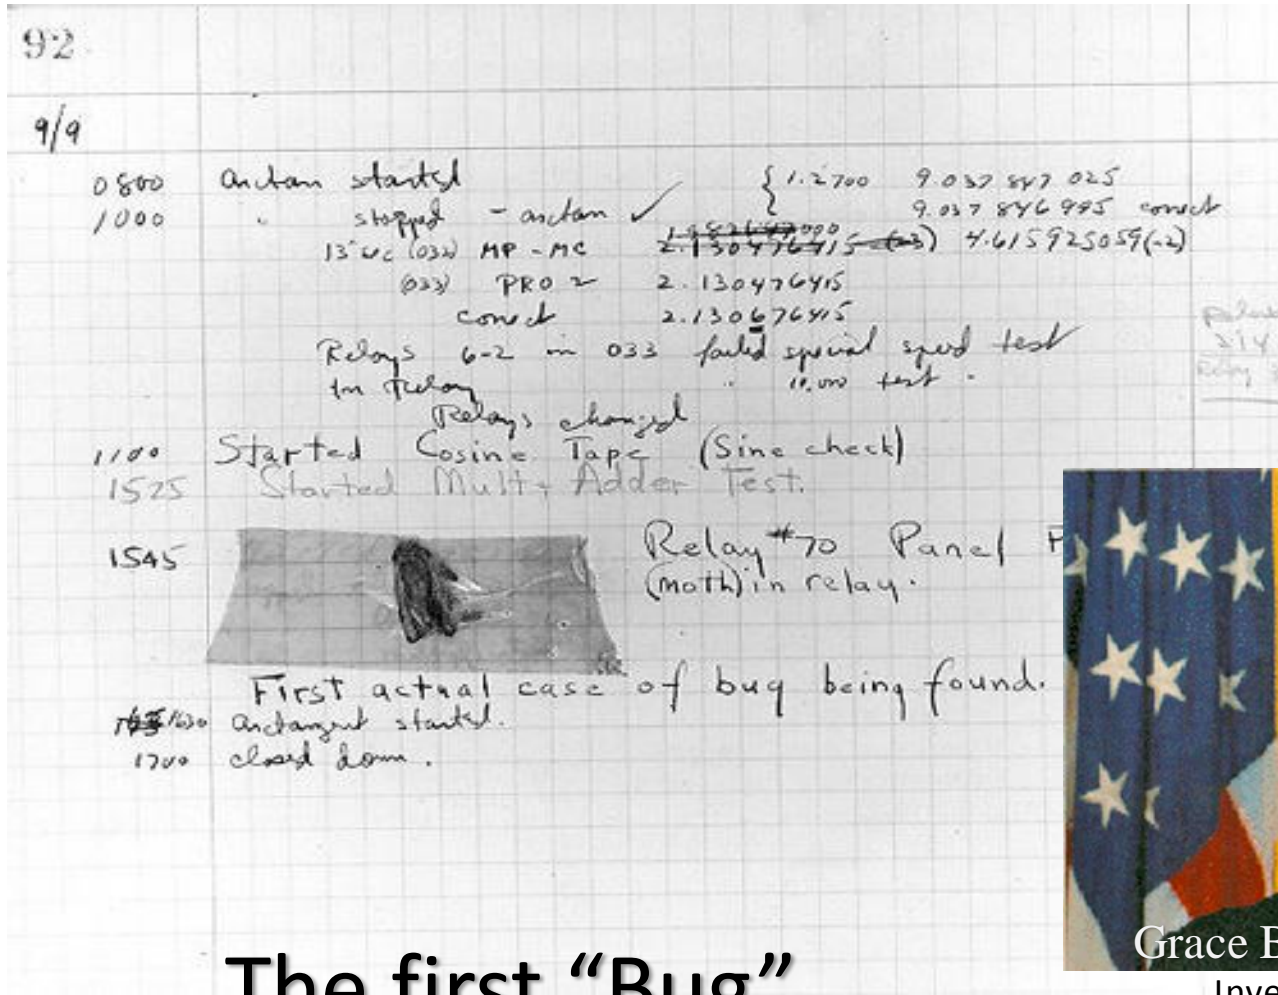 92
9/9
0800 arctan started { 1.2700 9.037 847 025
1000 " stopped - arctan ✓ 9.037 846 995 correct
13"uc (032) MP - MC 2.130476415 (-3) 4.615925059(-2)
(033) PRO 2 2.130476415
correct 2.130676415
Relays 6-2 in 033 failed special speed test
in Relay " 10.000 test.
Relays changed
1100 Started Cosine Tape (Sine check)
1525 Started Mult + Adder Test.
1545 Relay #70 Panel F
(moth) in relay.
First actual case of bug being found.
1630 arctangent started.
1700 closed down.
Relay
214
Relay
Grace B
The first “Bug”
Inve